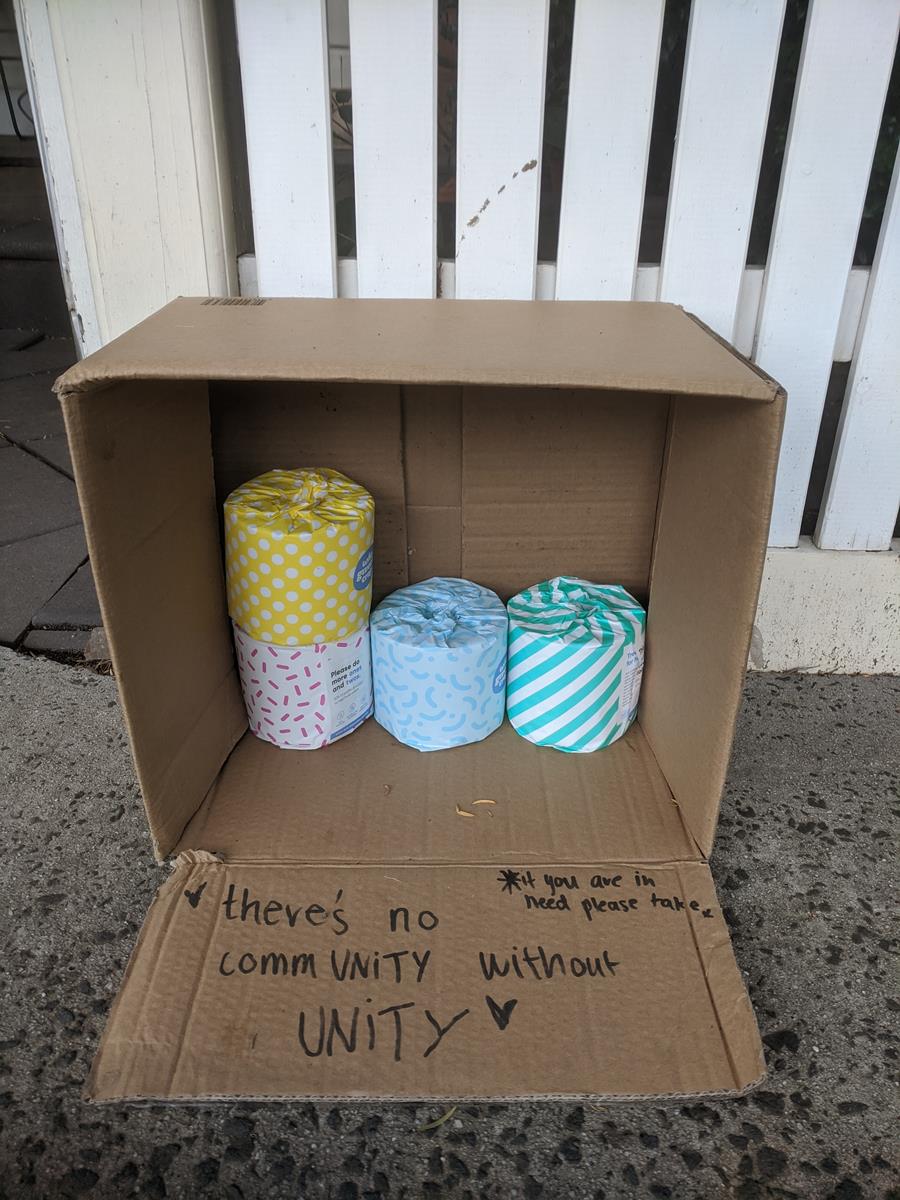 Please do
more ones
and twos.
there's no
commUNiTY without
UNiTY
*if you are in
need please take